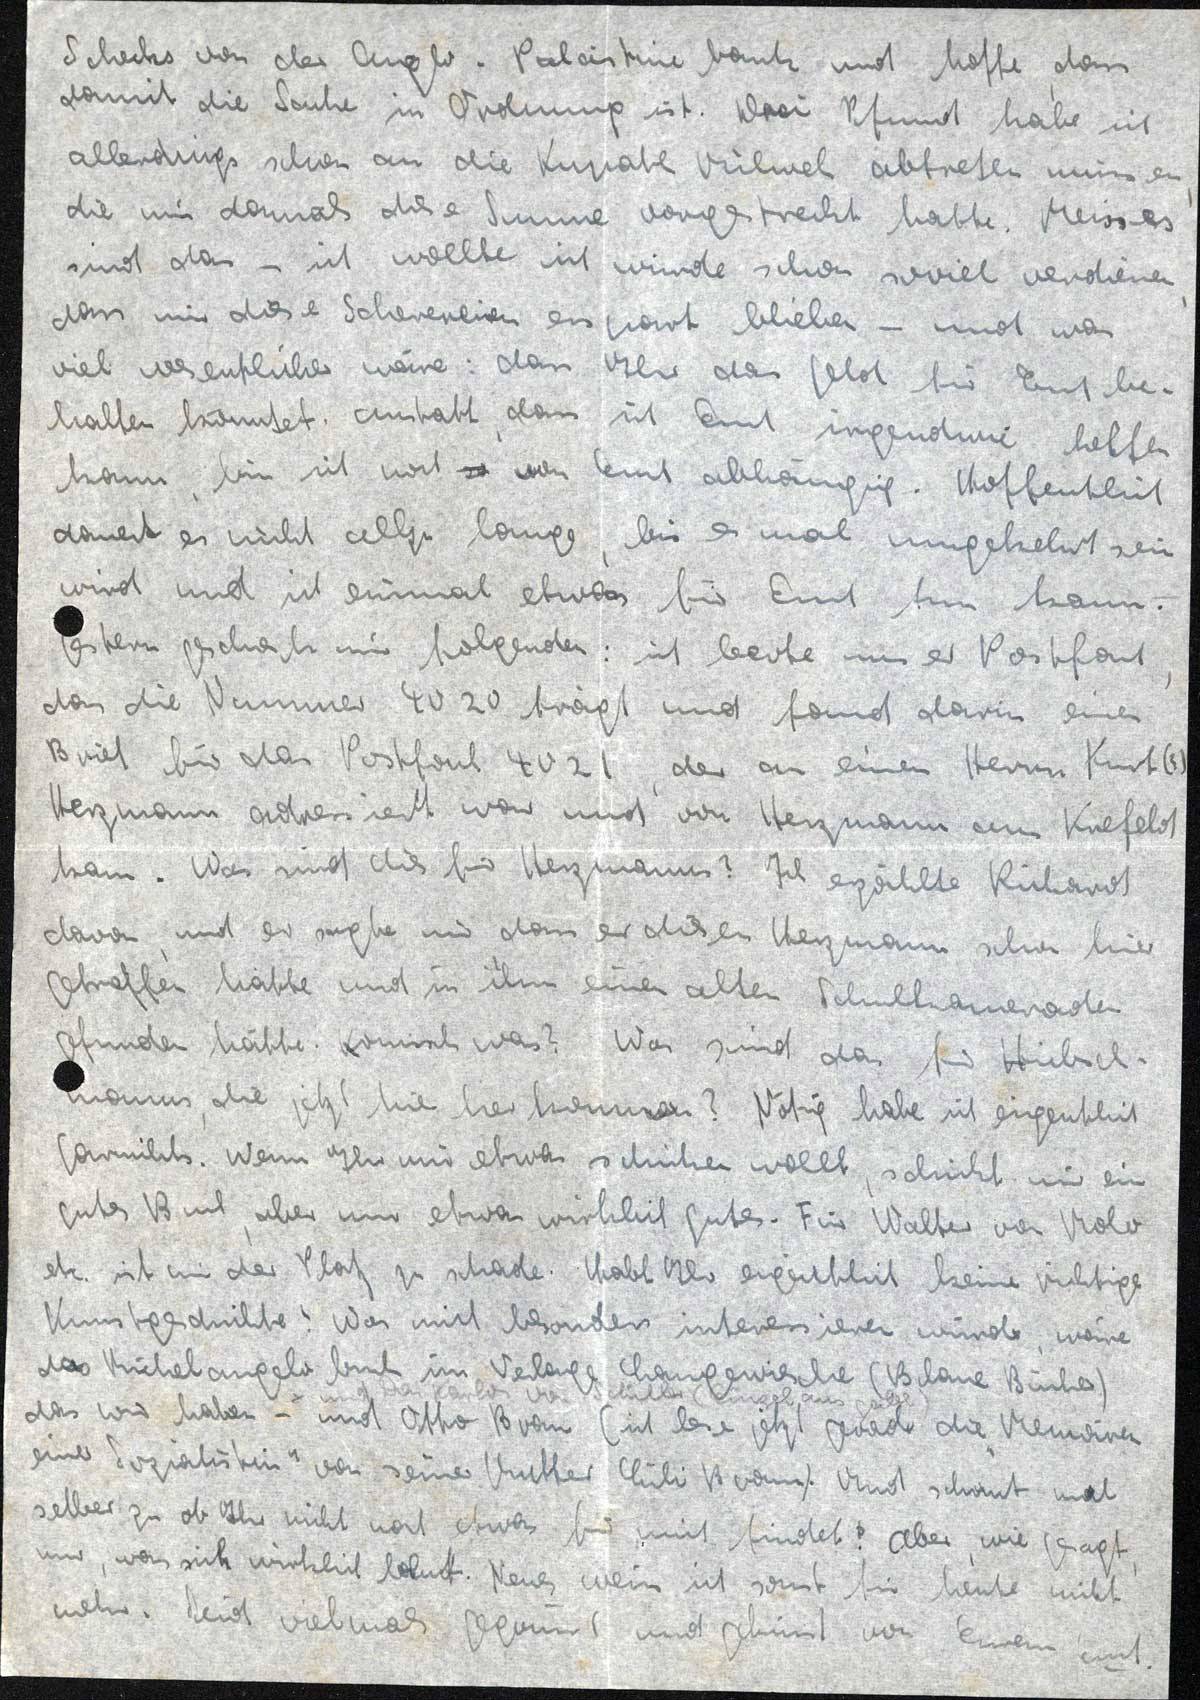 Schecks von der Anglo-Palästine bank und hoffe, dass
damit die Sache in Ordnung ist. Drei Pfund habe ich
allerdings schon an die Kupath Milweh abtreten müssen,
die mir damals diese Summe vorgestreckt hatte.
sind das – ich wollte ich würde schon soviel verdienen,
dass mir diese Scherereien erspart blieben – und was
viel wesentlicher wäre: dass Ihr das Geld für Euch be-
halten könntet. Anstatt, dass ich Euch irgendwie helfen
kann, bin ich noch von Euch abhängig. Hoffentlich
dauert es nicht allzu lange, bis es mal umgekehrt sein
wird und ich einmal etwas für Euch tun kann.–
Gestern geschah mir folgendes: ich leerte unser Postfach,
das die Nummer 4020 trägt und fand darin einen
Brief für das Postfach 4021, der an einen Herrn Kurt(?)
Herzmann adressiert war und von Herzmann aus Krefeld
kam. Was sind dies für Herzmanns? Ich erzählte Richard
davon, und er sagte mir dass er diesen Herzmann schon hier
getroffen hätte und in ihm einen alten Schulkameraden
gefunden hätte. Komisch was? Was sind das für Hirsch-
manns, die jetzt hierher kommen? Nötig habe ich eigentlich
garnichts. Wenn Ihr mir etwas schicken wollt, schickt mir ein
gutes Buch, aber nur etwas wirklich gutes. Für Walter von Molo
etc. ist mir der Platz zu schade. Habt Ihr eigentlich keine richtige
Kunstgeschichte? Was mich besonders interessieren würde, wäre
das Michelangelo buch im Verlage Langewiesche (Blaue Bücher)
– und Don Karlos von Schiller (Einzelausgabe)
das wir haben – und Otto Braun (ich lese jetzt gerade die „Memoiren
einer Sozialistin" von seiner Mutter Lili Braun). Und schaut mal
selber zu ob Ihr nicht noch etwas für mich findet? Aber, wie gesagt,
nur, was sich wirklich lohnt. Neues weiss ich sonst für heute nicht
mehr. Seid vielmals gegrüsst und geküsst von Eurem